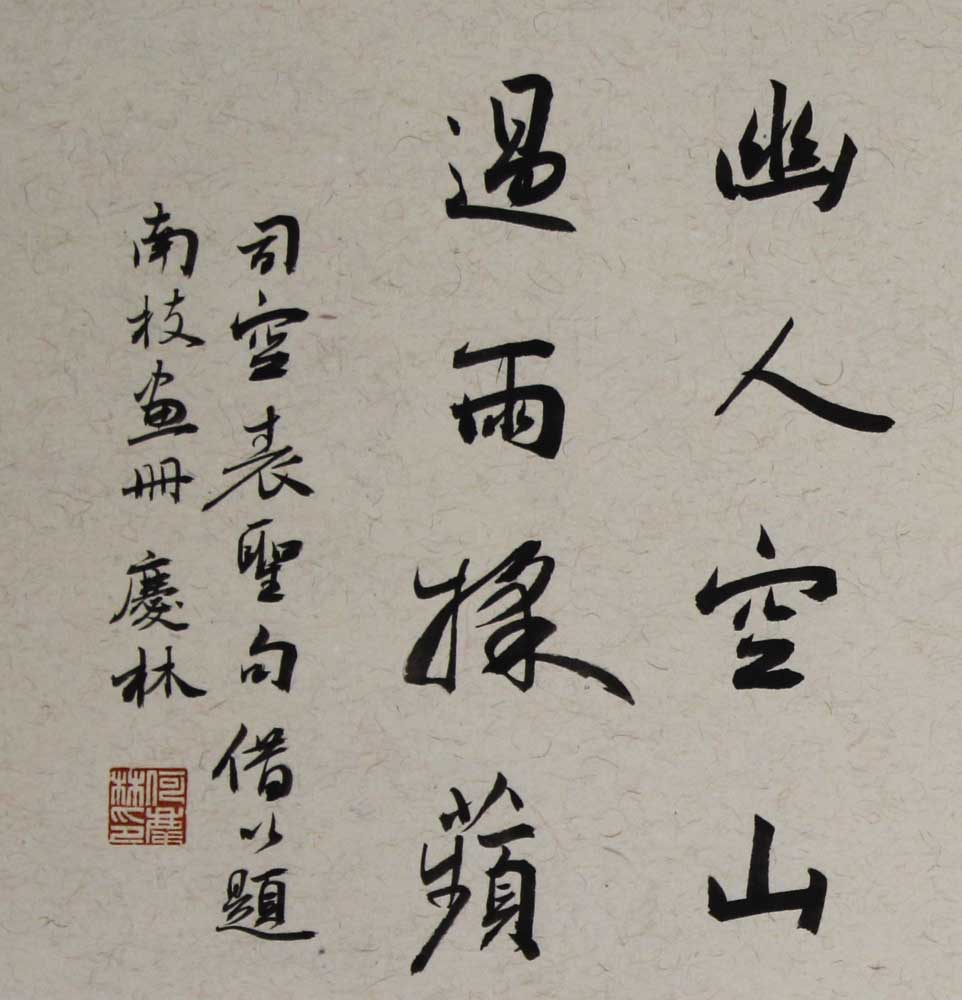 幽人空山
過雨採蘋
司空表聖句借以題
南枝畫冊 慶林
何慶林印